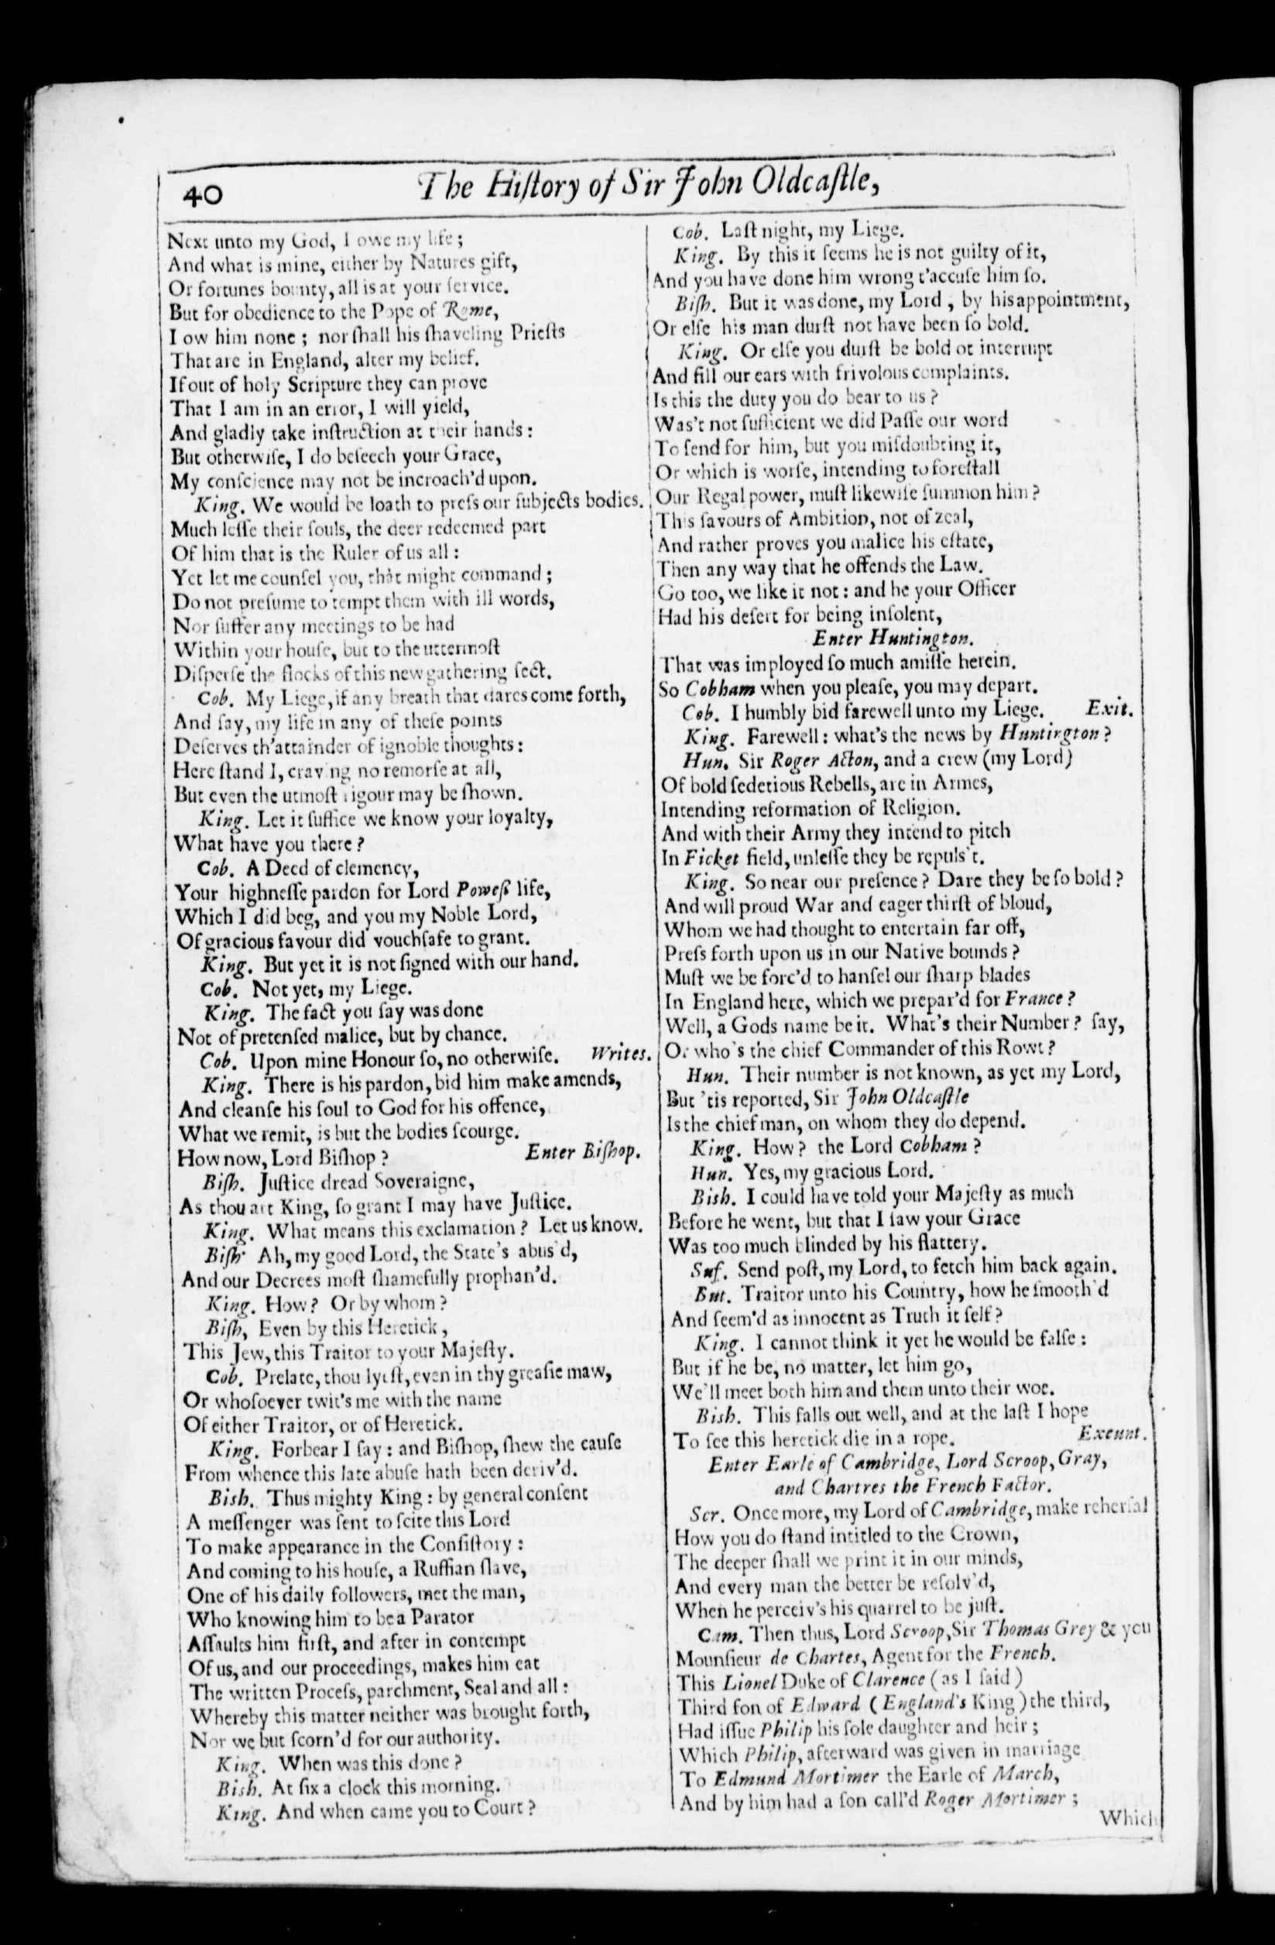 40
The Hiſtory of Sir John Oldcaſtle,
Next unto my God, I owe my life;
And what is mine, either by Natures gift,
Or fortunes bounty, all is at your ſervice.
But for obedience to the Pope of Rome,
I ow him none; nor ſhall his ſhaveling Prieſts
That are in England, alter my belief.
If out of holy Scripture they can prove
That I am in an error, I will yield,
And gladly take inſtruction at their hands:
But otherwiſe, I do beſeech your Grace,
My conſcience may not be incroach'd upon.
King. We would be loath to preſs our ſubjects bodies.
Much leſſe their ſouls, the deer redeemed part
Of him that is the Ruler of us all:
Yet let me counſel you, that might command;
Do not preſume to tempt them with ill words,
Nor ſuffer any meetings to be had
Within your houſe, but to the uttermoſt
Diſperſe the flocks of this new gathering ſect.
Cob. My Liege, if any breath that dares come forth,
And ſay, my life in any of theſe points
Deſerves th'attainder of ignoble thoughts:
Here ſtand I, craving no remorſe at all,
But even the utmoſt rigour may be ſhown.
King. Let it ſuffice we know your loyalty,
What have you there?
Cob. A Deed of clemency,
Your highneſſe pardon for Lord Poweſs life,
Which I did beg, and you my Noble Lord,
Of gracious favour did vouchſafe to grant.
King. But yet it is not ſigned with our hand.
Cob. Not yet, my Liege.
King. The fact you ſay was done
Not of pretenſed malice, but by chance.
Cob. Upon mine Honour ſo, no otherwiſe. Writes.
King. There is his pardon, bid him make amends,
And cleanſe his ſoul to God for his offence,
What we remit, is but the bodies ſcourge.
How now, Lord Biſhop? Enter Biſhop.
Biſh. Juſtice dread Soveraigne,
As thou art King, ſo grant I may have Juſtice.
King. What means this exclamation? Let us know.
Biſh. Ah, my good Lord, the State's abus'd,
And our Decrees moſt ſhamefully prophan'd.
King. How? Or by whom?
Biſh, Even by this Heretick,
This Jew, this Traitor to your Majeſty.
Cob. Prelate, thou lyeſt, even in thy greaſie maw,
Or whoſoever twit's me with the name
Of either Traitor, or of Heretick.
King. Forbear I ſay: and Biſhop, ſhew the cauſe
From whence this late abuſe hath been deriv'd.
Bish. Thus mighty King: by general conſent
A meſſenger was ſent to ſcite this Lord
To make appearance in the Conſiſtory:
And coming to his houſe, a Ruffian ſlave,
One of his daily followers, met the man,
Who knowing him to be a Parator
Aſſaults him firſt, and after in contempt
Of us, and our proceedings, makes him eat
The written Proceſs, parchment, Seal and all:
Whereby this matter neither was brought forth,
Nor we but ſcorn'd for our authority.
King. When was this done?
Bish. At ſix a clock this morning.
King. And when came you to Court?
Cob. Laſt night, my Liege.
King. By this it ſeems he is not guilty of it,
And you have done him wrong t'accuſe him ſo.
Biſh. But it was done, my Lord, by his appointment,
Or elſe his man durſt not have been ſo bold.
King. Or elſe you durſt be bold ot interrupt
And fill our ears with frivolous complaints.
Is this the duty you do bear to us?
Was't not ſufficient we did Paſſe our word
To ſend for him, but you miſdoubting it,
Or which is worſe, intending to foreſtall
Our Regal power, muſt likewiſe ſummon him?
This ſavours of Ambition, not of zeal,
And rather proves you malice his eſtate,
Then any way that he offends the Law.
Go too, we like it not: and he your Officer
Had his deſert for being inſolent,
Enter Huntington.
That was imployed ſo much amiſſe herein.
So Cobham when you pleaſe, you may depart.
Cob. I humbly bid farewell unto my Liege. Exit.
King. Farewell: what's the news by Huntington?
Hun. Sir Roger Acton, and a crew (my Lord)
Of bold ſeditious Rebells, are in Armes,
Intending reformation of Religion.
And with their Army they intend to pitch
In Ficket field, unleſſe they be repuls't.
King. So near our preſence? Dare they be ſo bold?
And will proud War and eager thirſt of bloud,
Whom we had thought to entertain far off,
Preſs forth upon us in our Native bounds?
Muſt we be forc'd to hanſel our ſharp blades
In England here, which we prepar'd for France?
Well, a Gods name be it. What's their Number? ſay,
Or who's the chief Commander of this Rowt?
Hun. Their number is not known, as yet my Lord,
But 'tis reported, Sir John Oldcaſtle
Is the chief man, on whom they do depend.
King. How? the Lord Cobham?
Hun. Yes, my gracious Lord.
Bish. I could have told your Majeſty as much
Before he went, but that I ſaw your Grace
Was too much blinded by his flattery.
Suf. Send poſt, my Lord, to fetch him back again.
But. Traitor unto his Country, how he ſmooth'd
And ſeem'd as innocent as Truth it ſelf?
King. I cannot think it yet he would be falſe:
But if he be, no matter, let him go,
We'll meet both him and them unto their woe.
Bish. This falls out well, and at the laſt I hope
To ſee this heretick die in a rope. Exeunt.
Enter Earle of Cambridge, Lord Scroop, Gray,
and Chartres the French Factor.
Scr. Once more, my Lord of Cambridge, make reherſal
How you do ſtand intitled to the Crown,
The deeper ſhall we print it in our minds,
And every man the better be reſolv'd,
When he perceiv's his quarrel to be juſt.
Cam. Then thus, Lord Scroop, Sir Thomas Grey & you
Mounſieur de Chartes, Agent for the French.
This Lionel Duke of Clarence (as I ſaid)
Third ſon of Edward (England's King) the third,
Had iſſue Philip his ſole daughter and heir;
Which Philip, afterward was given in marriage
To Edmund Mortimer the Earle of March,
And by him had a ſon call'd Roger Mortimer;
Which